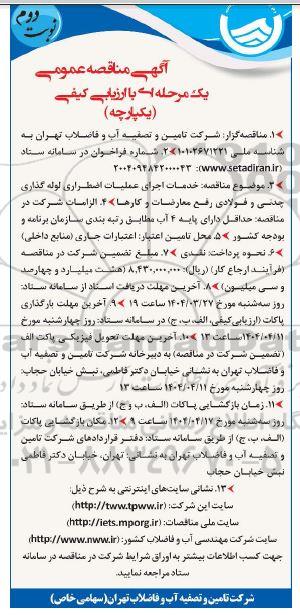 نوبت دوم
آگهی مناقصه عمومی
یک مرحله ای با ارزیابی کیفی
(یکپارچه)
۱. مناقصه‌گزار: شرکت تامین و تصفیه آب و فاضلاب تهران به
شناسه ملی ۱۰۱۰۳۶۷۱۲۲۱ ۲. شماره فراخوان در سامانه ستاد
(www.setadiran.ir): ۲۰۰۴۰۹۴۸۴۲۰۰۰۰۴۳
۳. موضوع مناقصه: خدمات اجرای عملیات اضطراری لوله گذاری
چدنی و فولادی رفع معارضات و کارها ۴. الزامات شرکت در
مناقصه: حداقل دارای پایه ۴ آب مطابق رتبه بندی سازمان برنامه و
بودجه کشور ۵. محل تامین اعتبار: اعتبارات جاری (منابع داخلی)
۶. نحوه پرداخت: نقدی ۷. مبلغ تضمین شرکت در مناقصه
(فرآیند ارجاع کار) (ریال): ۸,۴۳۰,۰۰۰,۰۰۰ (هشت میلیارد و چهارصد
و سی میلیون) ۸. آخرین مهلت دریافت اسناد از سامانه ستاد:
روز سه‌شنبه مورخ ۱۴۰۴/۰۳/۲۷ ساعت ۱۹ ۹. آخرین مهلت بارگذاری
پاکات (ارزیابی کیفی، الف، ب، ج) در سامانه ستاد: روز چهارشنبه مورخ
۱۴۰۴/۰۴/۱۱ ساعت ۱۳ ۱۰. آخرین مهلت تحویل فیزیکی پاکت الف
(تضمین شرکت در مناقصه) به دبیرخانه شرکت تامین و تصفیه آب
و فاضلاب تهران به نشانی خیابان دکتر فاطمی، نبش خیابان حجاب:
روز چهارشنبه مورخ ۱۴۰۴/۰۴/۱۱ ساعت ۱۳
۱۱. زمان بازگشایی پاکات (الف، ب و ج) از طریق سامانه ستاد:
روز سه‌شنبه مورخ ۱۴۰۴/۰۴/۱۷ ساعت ۹ ۱۲. مکان بازگشایی پاکات
(الف، ب، ج) از طریق سامانه ستاد: دفتر قراردادهای شرکت تامین
و تصفیه آب و فاضلاب تهران به نشانی: تهران، خیابان دکتر فاطمی
نبش خیابان حجاب
۱۳. نشانی سایت‌های اینترنتی به شرح ذیل:
سایت این شرکت: (http://tww.tpww.ir)
سایت ملی مناقصات: (http://iets.mporg.ir)
سایت شرکت مهندسی آب و فاضلاب کشور: (http://www.nww.ir)
جهت کسب اطلاعات بیشتر به اوراق شرایط شرکت در مناقصه در سامانه
ستاد مراجعه نمایید.
شرکت تامین و تصفیه آب و فاضلاب تهران (سهامی خاص)